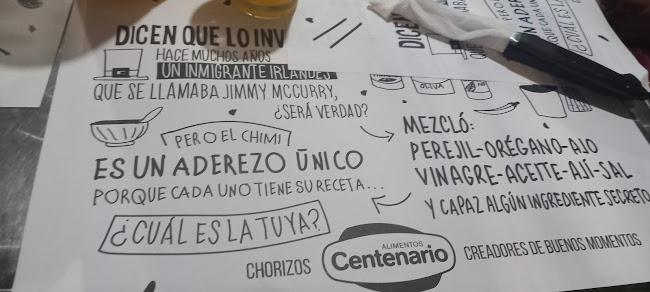 DICEN QUE LO INV
HACE MUCHOS AÑOS
UN INMIGRANTE IRLANDES
QUE SE LLAMABA JIMMY MCCURRY,
¿SERÁ VERDAD?
PERO EL CHIMI
ES UN ADEREZO ÚNICO
PORQUE CADA UNO TIENE SU RECETA...
¿CUÁL ES LA TUYA?
OLIVA
MEZCLÓ:
PEREJIL-ORÉGANO-AJO
VINAGRE-ACEITE-AJÍ-SAL
Y CAPAZ ALGÚN INGREDIENTE SECRETO
CHORIZOS
ALIMENTOS
Centenario
CREADORES DE BUENOS MOMENTOS
DICEN
¿CUÁL ES LA